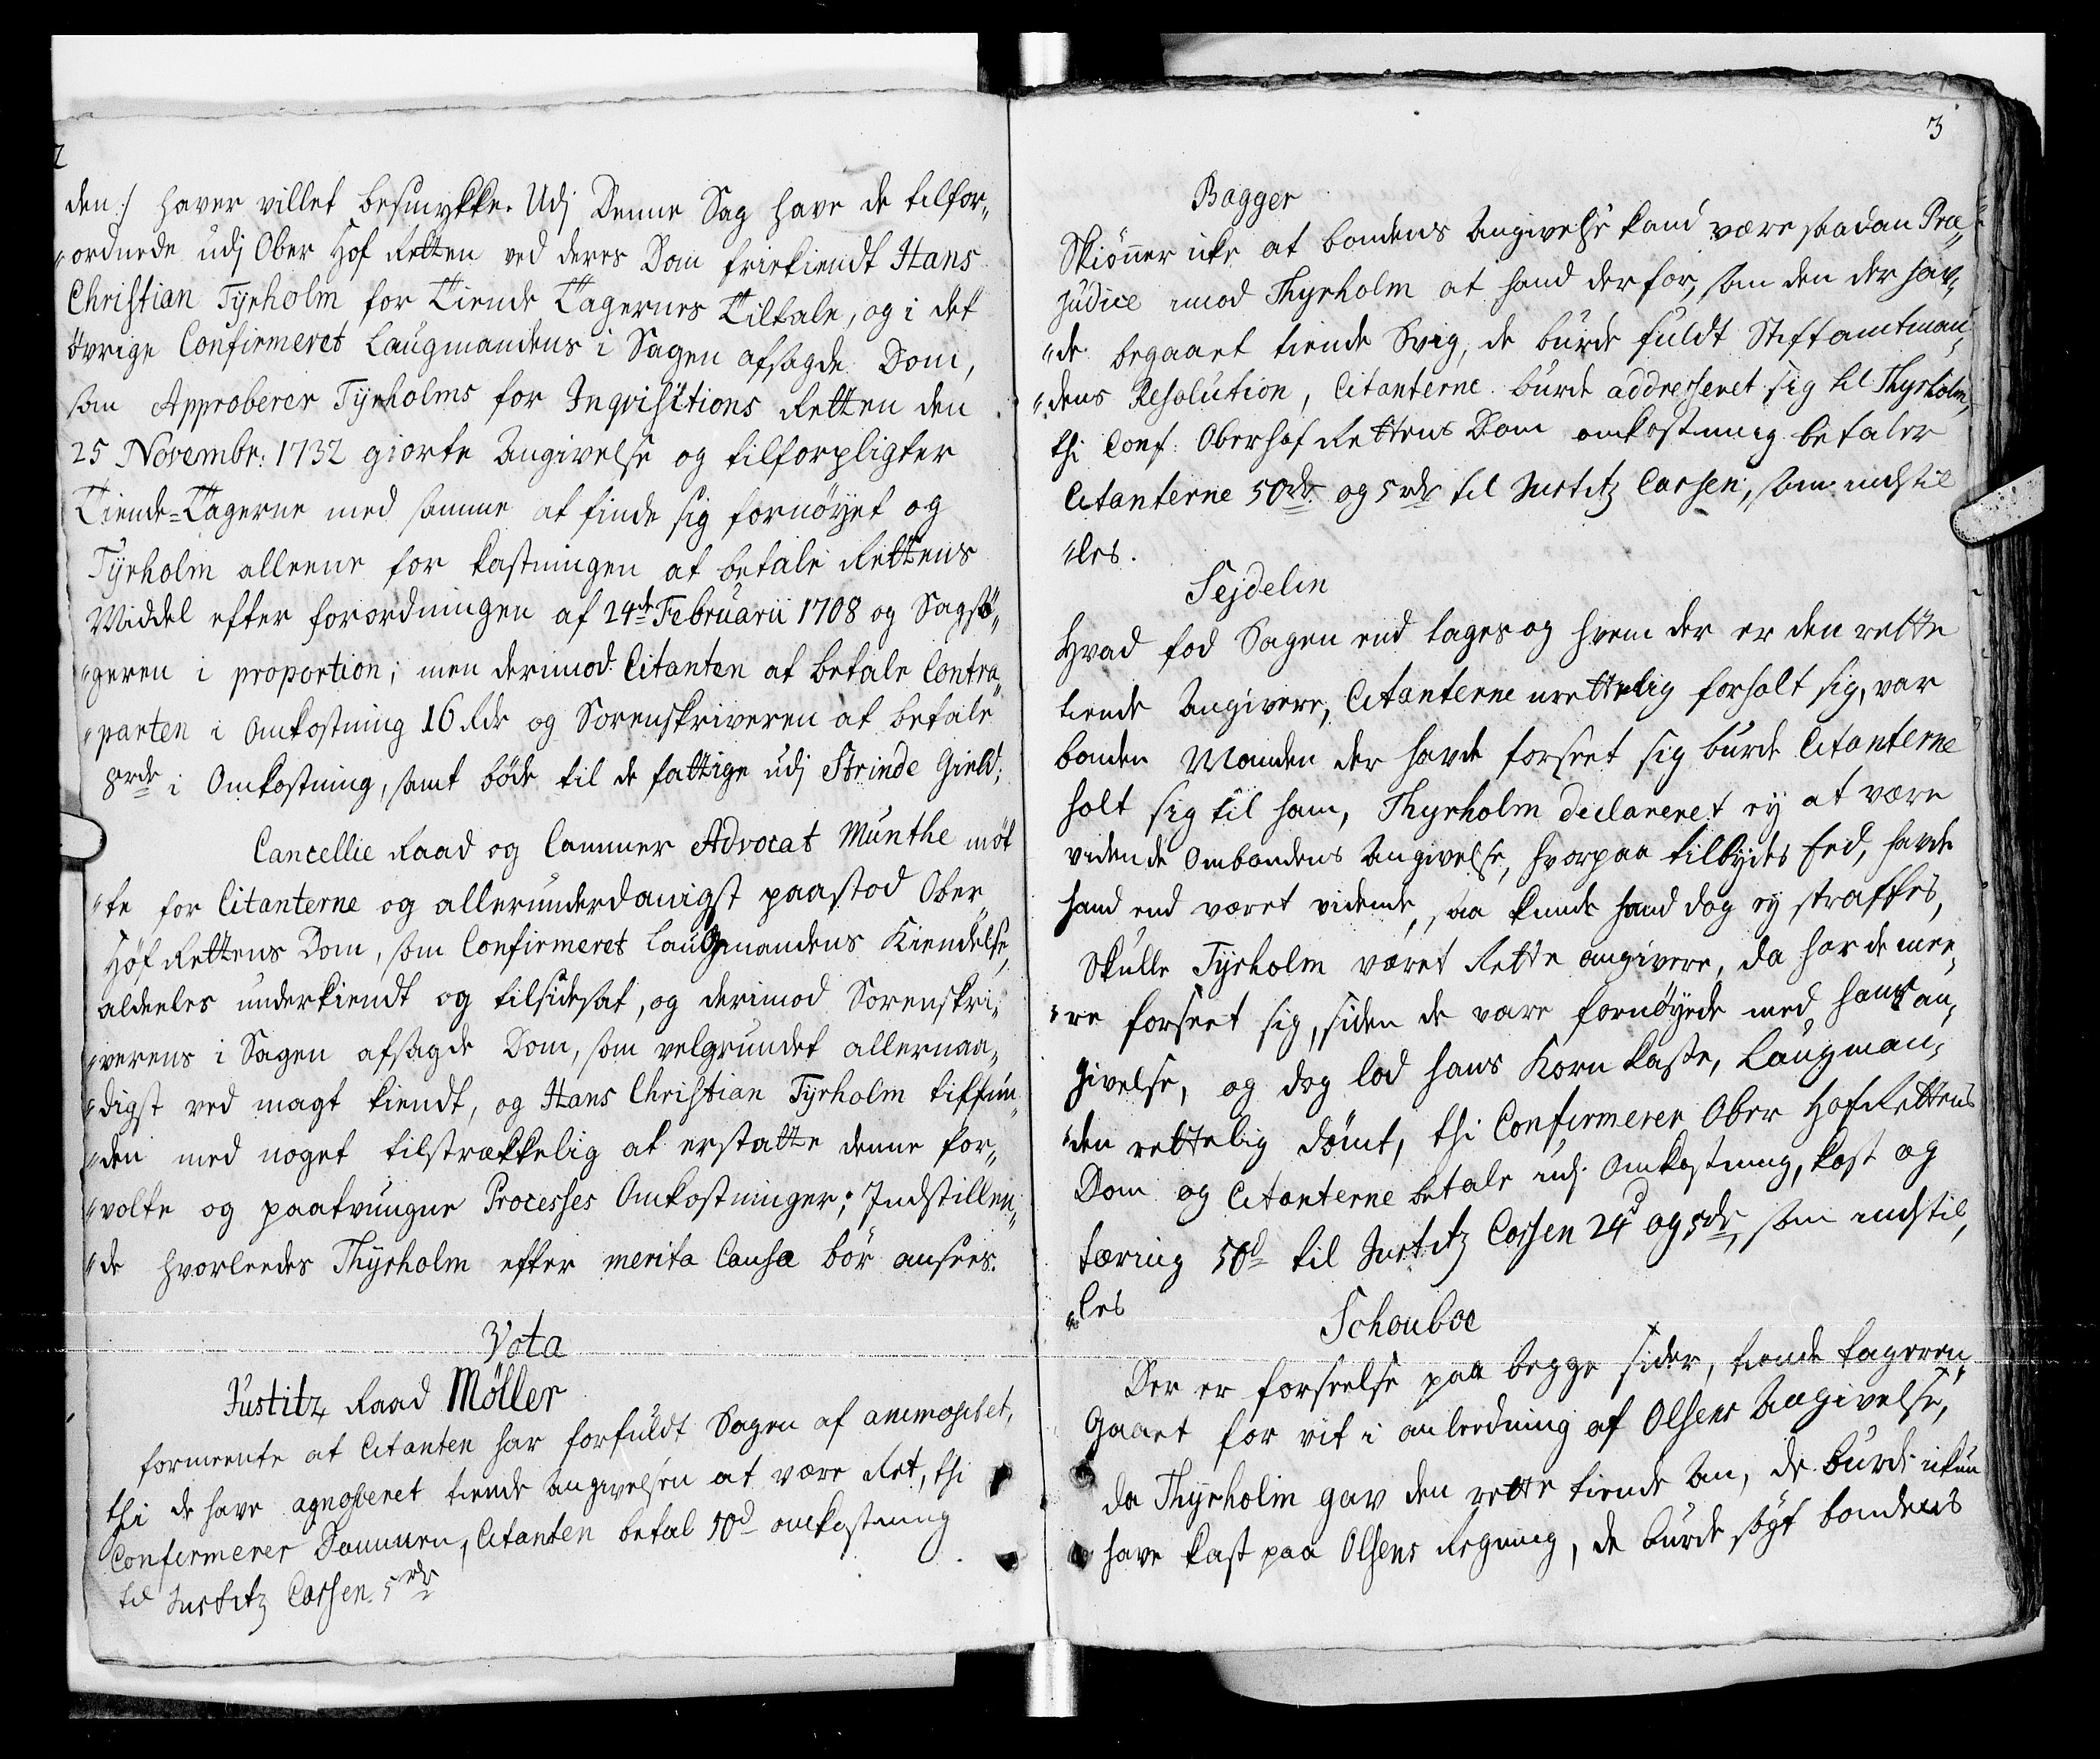 2
den :/ haver villet besmykke. Udj Denne Sag have de tilfor„
„ordnede udj Ober Hof Retten ved deres Dom frikiendt Hans
Christian Tÿrholm for Tiende Tagernes Tiltale, og i det
övrige Confirmeret Laugmandens i Sagen afsagde Dom,
som Approberer Tÿrholms for Inqvisitions Retten den
25 Novembr: 1732 giorte Angivelse og tilforpligter
Tiende-Tagerne med samme at finde sig fornöyet og
Tÿrholm alleene for kastningen at betale Rettens
Middel efter forordningen af 24de Februarii 1708 og Sagsö„
„geren i proportion; men derimod Citanten at betale Contra„
„parten i Omkostning 16 Rdr og Sorenskriveren at betale
8 rdr i Omkostning, samt böde til de fattige udj Strinde Gield;
Cancellie Raad og Cammer Advocat Munthe möt
„te for Citanterne og allerunderdanigst paastod Ober
Hof Rettens Dom, som Confirmeret Laugmandens Kiendelse,
aldeeles underkiendt og tilsidesat, og derimod Sorenskri„
„verens i Sagen afsagde Dom, som velgrundet allernaa„
„digst ved magt kiendt, og Hans Christian Tyrholm tilfun„
„den med noget tilstrækkelig at erstatte denne for„
„volte og paatvungne Processes Omkostninger; Indstillen„
„de hvorleedes Thyrholm efter merita Causæ bör ansees.
Vota
Justitz Raad Möller
formeente at Citanten har forfuldt Sagen af animositet,
thi de have agnosceret tiende angivelsen at være Ret, thi
Confirmerer Dommen, Citanten betal 50d omkostning
til Justitz Cassen 5 rdr
3
Bagger
Skiönner icke at bondens Angivelse kand være saadan Præ„
judice imod Thyrholm at hand derfor, som den der hav„
„de begaaet tiende Svig, de burde fuldt Stiftamtman„
„dens Resolution, Citanterne burde addresseret sig til Thyrholm,
thi Conf. Oberhof Rettens Dom omkostning betaler
Citanterne 50 rdr og 5 rdr til Justitz Cassen, som indstil
„les.
Sejdelin
Hvad fod Sagen end tages og hvem der er den rette
tiende Angivere, Citanterne urettelig forholt sig, var
bonden Manden der havde forseet sig burde Citanterne
holt sig til ham, Thyrholm declareret ey at være
vidende Ombondens Angivelse, hvorpaa tilbydes Eed, havde
hand end været vidende, saa kunde hand dog ey straffes,
Skulle Tyrholm været Rette angivere, da har de mee„
„re forseet sig, siden de vare fornöyede med hans an„
givelse, og dog lod hans Korn kaste, Laugman„
„den rettelig dömt, thi Confirmerer Ober Hof Rettens
Dom og Citanterne betale udj Omkostning, kost og
tæring 50d til Justitz Cassen 24d og 5dr, som indstil„
„les
Schouboe
Der er forseelse paa begge sider, tiende tageren„
Gaaet for vit i anleedning af Olsens Angivelse,
da Thyrholm gav den rette tiende An, de burde ikun
have kast paa Olsens Regning, de burde sögt bondens